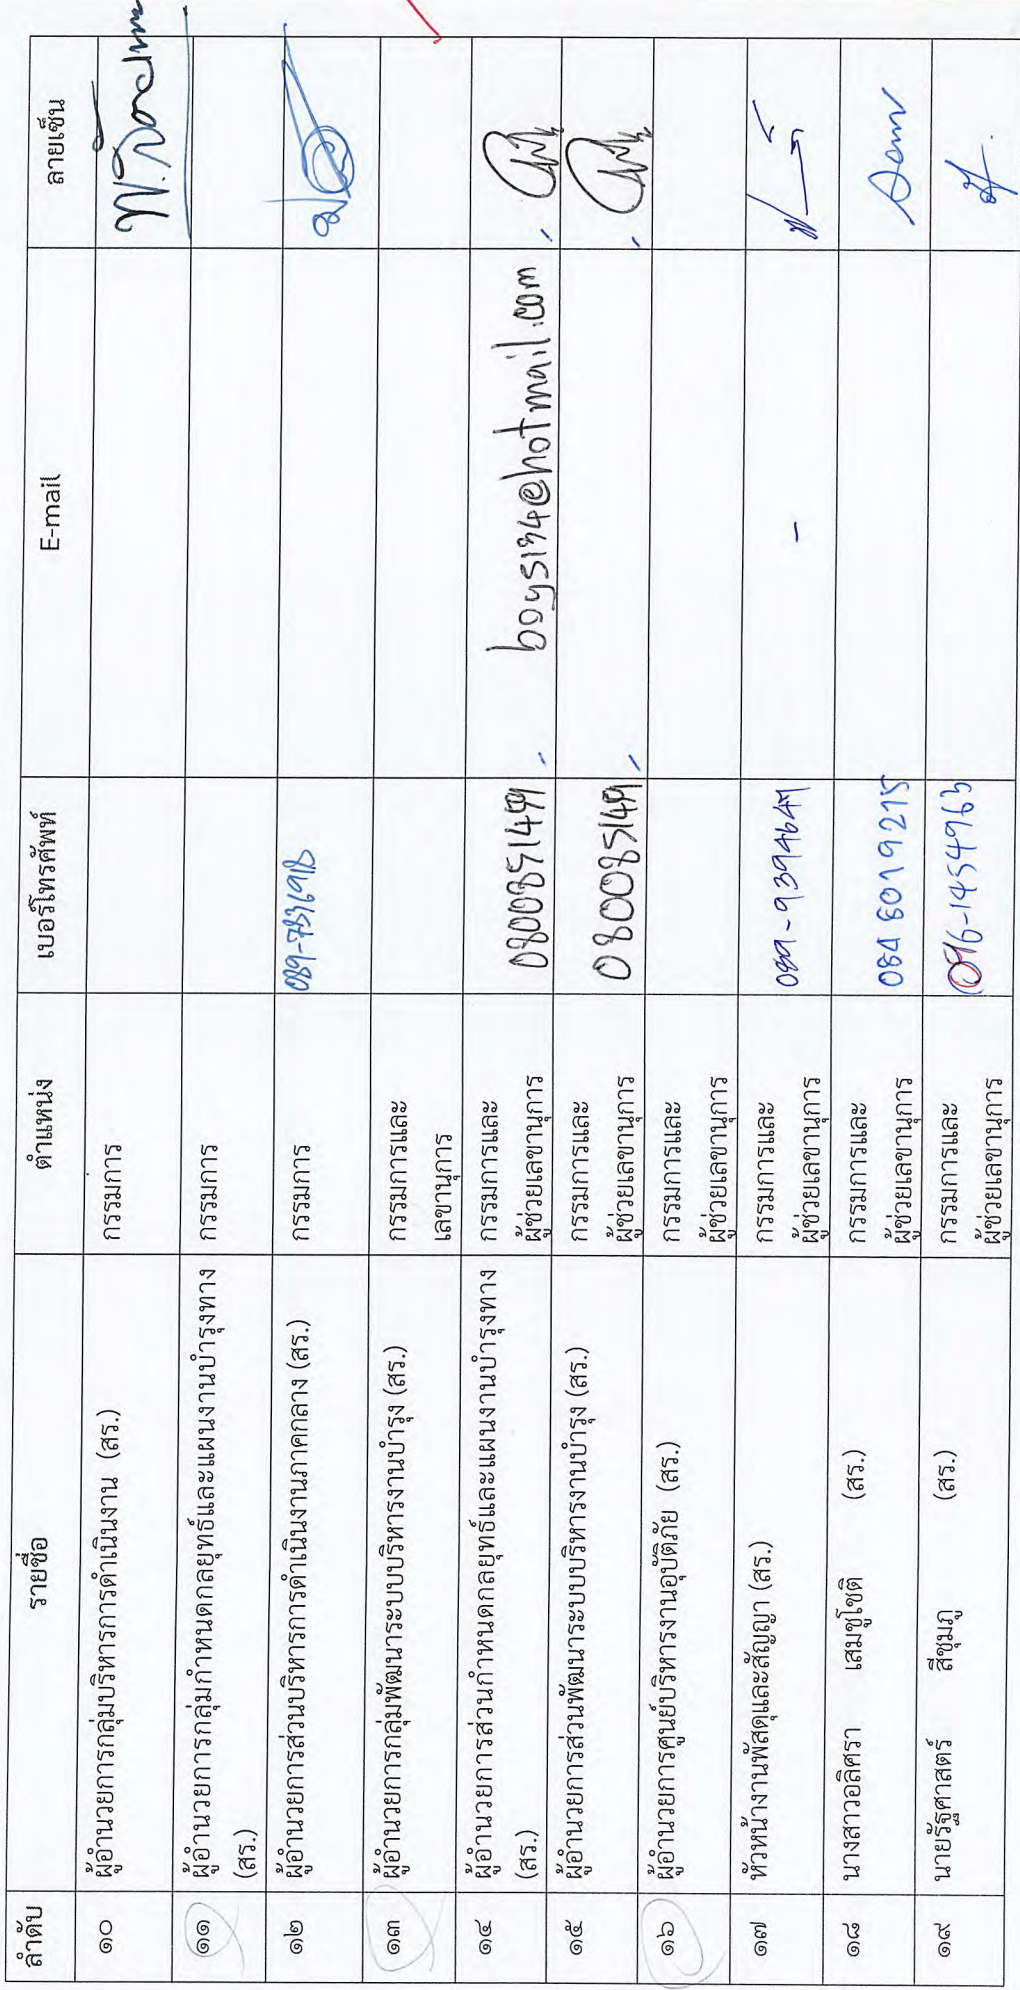 ลำดับ รายชื่อ ตำแหน่ง เบอร์โทรศัพท์ E-mail ลายเซ็น
๑๐ ผู้อำนวยการกลุ่มบริหารการดำเนินงาน (สร.) กรรมการ
๑๑ ผู้อำนวยการกลุ่มกำหนดกลยุทธ์และแผนงานบำรุงทาง กรรมการ
(สร.)
๑๒ ผู้อำนวยการส่วนบริหารการดำเนินงานภาคกลาง (สร.) กรรมการ
๑๓ ผู้อำนวยการกลุ่มพัฒนาระบบบริหารงานบำรุง (สร.) กรรมการและ
เลขานุการ
๑๔ ผู้อำนวยการส่วนกำหนดกลยุทธ์และแผนงานบำรุงทาง กรรมการและ
(สร.) ผู้ช่วยเลขานุการ 0800851499 boys134@hotmail.com
๑๕ ผู้อำนวยการส่วนพัฒนาระบบบริหารงานบำรุง (สร.) กรรมการและ
ผู้ช่วยเลขานุการ
๑๖ ผู้อำนวยการศูนย์บริหารงานอุบัติภัย (สร.) กรรมการและ
ผู้ช่วยเลขานุการ
๑๗ หัวหน้างานพัสดุและสัญญา (สร.) กรรมการและ -
ผู้ช่วยเลขานุการ
๑๘ นางสาวอลิศรา เสมชูโชติ (สร.) กรรมการและ
ผู้ช่วยเลขานุการ 084 6019215
๑๙ นายรัฐศาสตร์ สีชุมภู (สร.) กรรมการและ
ผู้ช่วยเลขานุการ